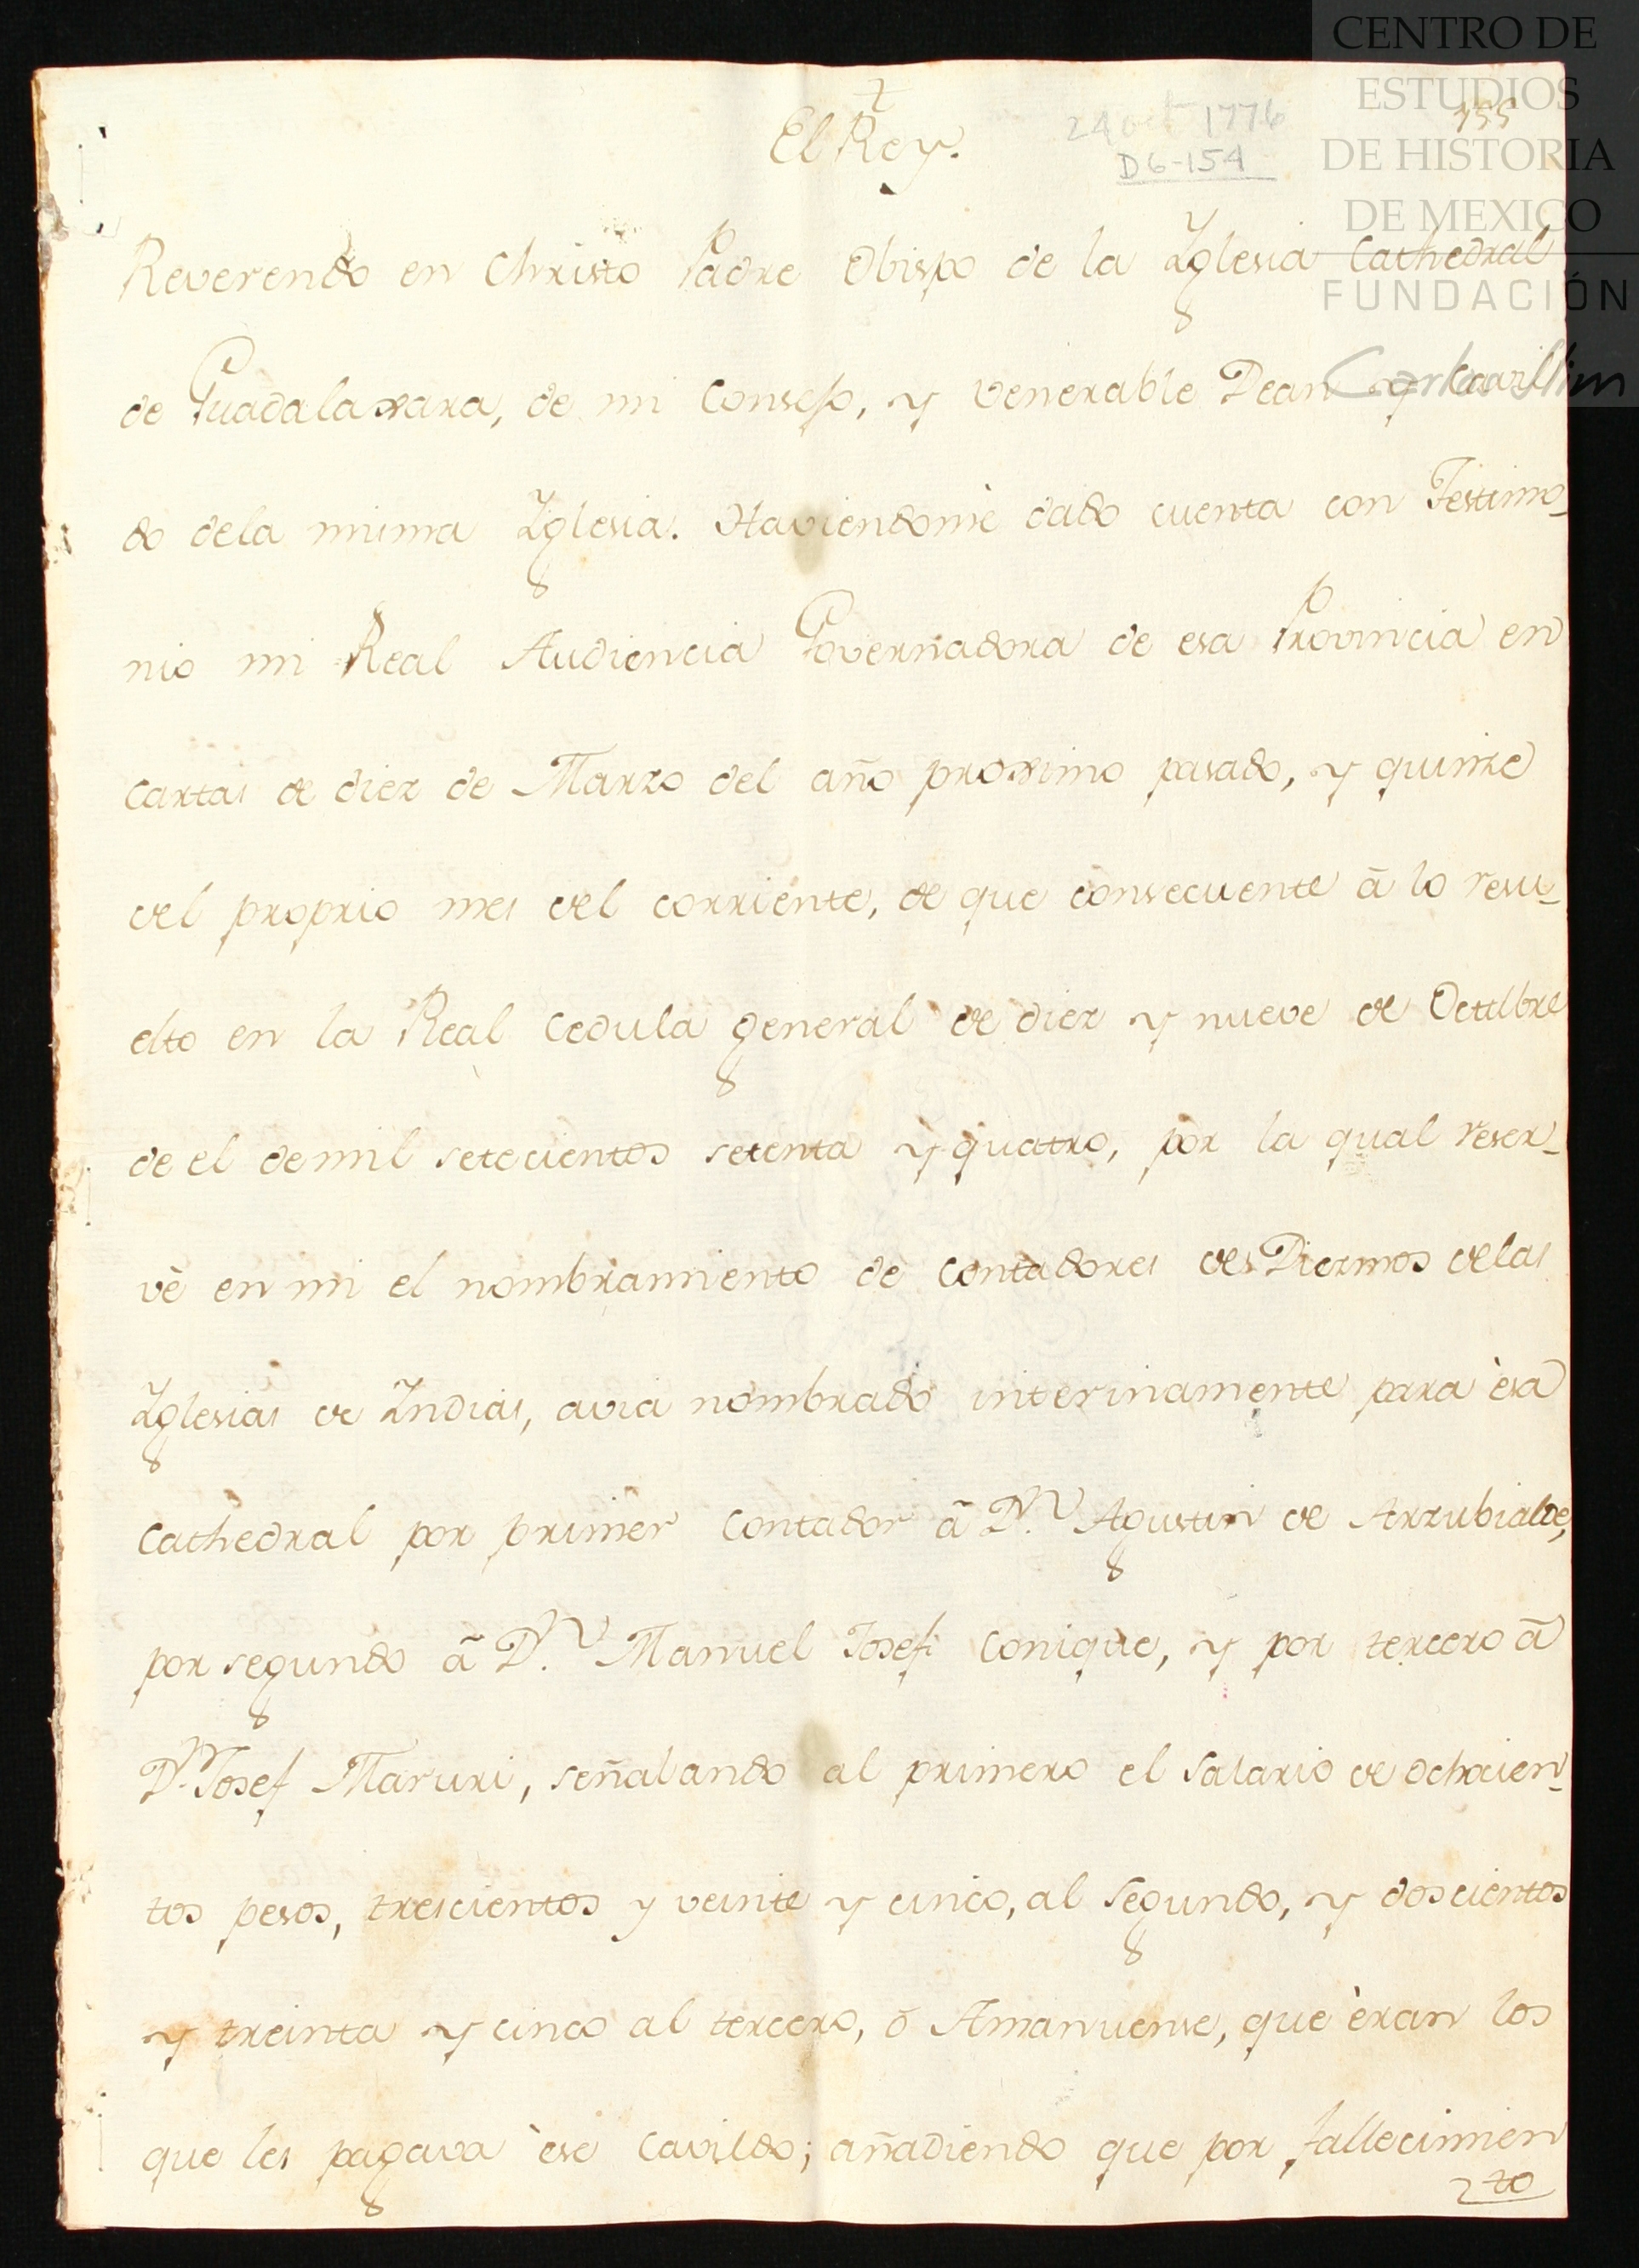 CENTRO DE
ESTUDIOS
DE HISTORIA
DE MEXICO
FUNDACIÓN
Carlos Slim
24 oct 1776
D6-154
155
El Rey.
Reverendo en Christo Padre Obispo de la Yglesia Cathedral
de Guadalaxara, de mi Consejo, y venerable Dean y Cavil
do dela misma Yglesia. Haviendomè dado cuenta con Testimo_
nio mi Real Audiencia Governadora de esa Provincia en
cartas de diez de Marzo del año proximo pasado, y quinze
del proprio mes del corriente, de que consecuente ã lo resu_
elto en la Real Cedula general de diez y nueve de Octubre
de el de mil setecientos setenta y quatro, por la qual reser_
vè en mi el nombramiento de Contadores des Diezmos delas
Yglesias de Yndias, avia nombrado interinamente para èsa
Cathedral por primer Contador ã Dn. Agustin de Arrubialde,
por segundo ã Dn. Manuel Josef Conique, y por tercero ã
Dn. Josef Maruri, señalando al primero el Salario de ochocien_
tos pesos, trescientos y veinte y cinco, al Segundo, y doscientos
y treinta y cinco al tercero, ò Amanuense, que èran los
que les pagava èse Cavildo; añadiendo que por fallecimien
to